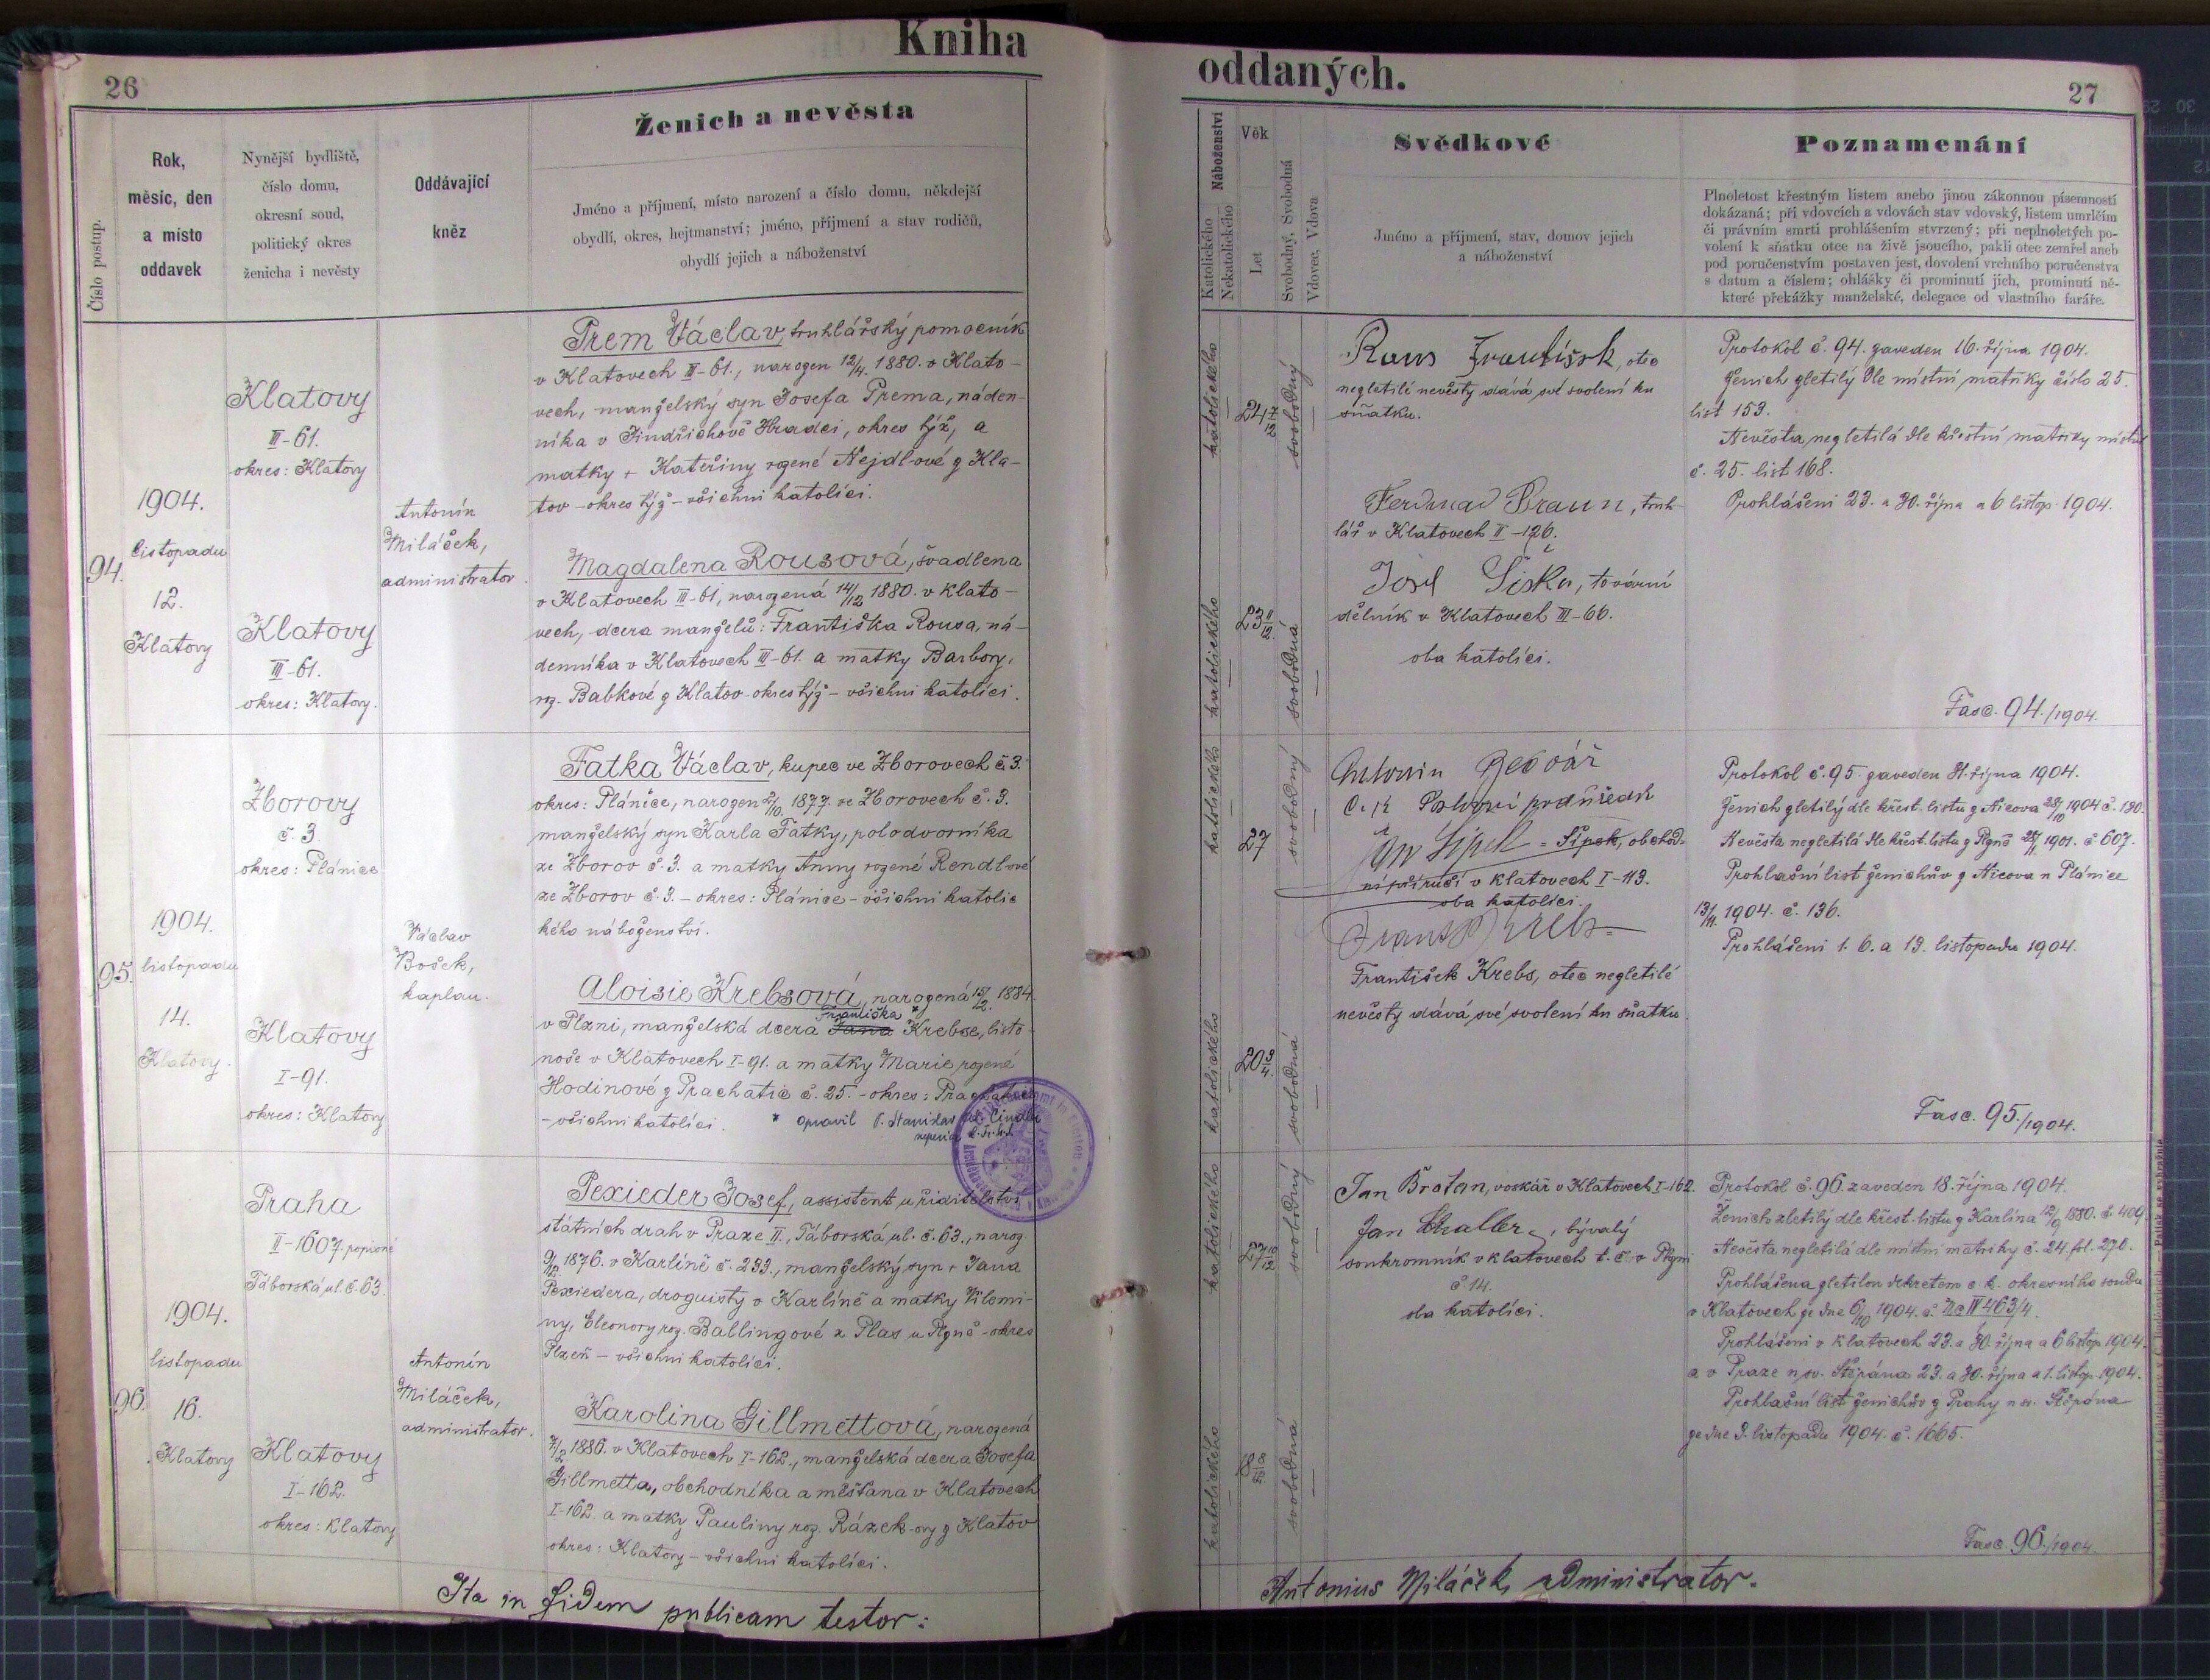 Kniha
26
Ženich a nevěsta
Číslo postup.
Rok,
měsíc, den
a místo
oddavek
Nynější bydliště,
číslo domu,
okresní soud,
politický okres
ženicha i nevěsty
Oddávající
kněz
Jméno a příjmení, místo narození a číslo domu, někdejší
obydlí, okres, hejtmanství; jméno, příjmení a stav rodičů,
obydlí jejich a náboženství
94.
1904.
listopadu
12.
Klatovy
Klatovy
III-61.
okres: Klatovy
Klatovy
III-61.
okres: Klatovy.
Antonín
Miláček,
administrator.
Prem Václav, truhlářský pomocník
v Klatovech III-61., narozen 12/4. 1880. v Klato-
vech, manželský syn Josefa Prema, náden-
níka v Jindřichově Hradci, okres týž, a
matky + Kateřiny rozené Nejdlové z Kla-
tov - okres týž - všichni katolíci.
Magdalena Rousová, švadlena
v Klatovech III-61, narozená 14/12 1880. v Klato-
vech, dcera manželů: Františka Rousa, ná-
denníka v Klatovech III-61. a matky Barbory,
roz. Babkové z Klatov - okres týž - všichni katolíci.
95.
1904.
listopadu
14.
Klatovy.
Zborovy
č. 3
okres: Plánice
Klatovy
I-91.
okres: Klatovy
Václav
Bošek,
kaplan.
Fatka Václav, kupec ve Zborovech č. 3.
okres: Plánice, narozen 2/10. 1877. ve Zborovech č. 3.
manželský syn Karla Fatky, polodvorníka
ze Zborov č. 3. a matky Anny rozené Rendlové
ze Zborov č. 3. - okres: Plánice - všichni katolic
kého náboženství.
Aloisie Krebsová, narozená 15/2. 1884.
Františka *)
v Plzni, manželská dcera Jana Krebse, listo-
noše v Klatovech I-91. a matky Marie rozené
Hodinové z Prachatic č. 25. - okres: Prachatice
- všichni katolíci. * opravil P. Stanislav
96.
1904.
listopadu
16.
Klatovy
Praha
II-1607. popisné
Táborská ul. č. 63.
Klatovy
I-162.
okres: Klatovy
Antonín
Miláček,
administrator.
Pexieder Josef, assistent u ředitelství
státních drah v Praze II., Táborská ul. č. 63., naroz.
9/12. 1876. v Karlíně č. 233., manželský syn + Jana
Pexiedera, droguisty v Karlíně a matky Vilemi-
ny, Eleonory roz. Ballingové z Plas u Plzně - okres
Plzeň - všichni katolíci.
Karolina Gillmettová, narozená
7/2 1886. v Klatovech I-162., manželská dcera Josefa
Gillmetta, obchodníka a měšťana v Klatovech
I-162. a matky Pauliny roz. Rázek-ovy z Klatov
okres: Klatovy - všichni katolíci.
Ita in fidem publicam testor:
oddaných.
27
Náboženství
Katolického
Nekatolického
Věk
Let
Svobodný, Svobodná
Vdovec, Vdova
Svědkové
Jméno a příjmení, stav, domov jejich
a náboženství
Poznamenání
Plnoletost křestným listem anebo jinou zákonnou písemností
dokázaná; při vdovcích a vdovách stav vdovský, listem umrlčím
či právním smrti prohlášením stvrzený; při neplnoletých po-
volení k sňatku otce na živě jsoucího, pakli otec zemřel aneb
pod poručenstvím postaven jest, dovolení vrchního poručenstva
s datum a číslem; ohlášky či prominutí jich, prominutí ně-
které překážky manželské, delegace od vlastního faráře.
katolického
24 7/12
svobodný
katolického
23 11/12.
svobodná
Rous František, otec
nezletilé nevěsty dává své svolení ku
sňatku.
Ferdinad Braun, truh-
lář v Klatovech II-126.
Josef Šiška, tovární
dělník v Klatovech III-66.
oba katolíci.
Protokol č. 94. zaveden 16. října 1904.
Ženich zletilý dle místní matriky číslo 25.
list 153.
Nevěsta nezletilá dle křestní matriky místní
č. 25. list 168.
Prohlášeni 23. a 30. října a 6 listop. 1904.
Fasc. 94./1904.
katolického
27
svobodný
katolického
20 3/4.
svobodná
Antonín
= Šípek, obchod-
ní příručí v Klatovech I-113.
oba katolíci.
František Krebs, otec nezletilé
nevěsty dává své svolení ku sňatku.
Protokol č. 95. zaveden 31. října 1904.
Ženich zletilý dle křest. listu z Nicova 28/10 1904 č. 180.
Nevěsta nezletilá dle křest. listu z Plzně 1901. č. 607.
Prohlašní list ženichův z Nicova u Plánice
13/11. 1904. č. 136.
Prohlášeni 1. 6. a 13. listopadu 1904.
Fasc. 95./1904.
katolického
27 10/12
svobodný
katolického
18
svobodná
Jan Bratan, voskář v Klatovech I-162.
Jan Schaller, bývalý
soukromník v Klatovech t. č. v Plzni
č. 14.
oba katolíci.
Protokol č. 96. zaveden 18. října 1904.
Ženich zletilý dle křest. listu z Karlína 12/9 1880. č. 409.
Nevěsta nezletilá dle místní matriky č. 24. fol. 270.
Prohlášena zletilou dekretem c. k. okresního soudu
v Klatovech ze dne 6/10 1904. č. Nc IV 463/4.
Prohlášeni v Klatovech 23. a 30. října a 6 listop. 1904.
a v Praze u sv. Štěpána 23. a 30. října a 1. listop. 1904.
Prohlašní list ženichův z Prahy u sv. Štěpána
ze dne 9. listopadu 1904. č. 1665.
Fasc. 96./1904.
Antonius Miláček, administrator.